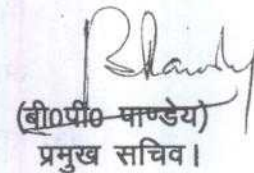 (बी0पी0 पाण्डेय)
प्रमुख सचिव।